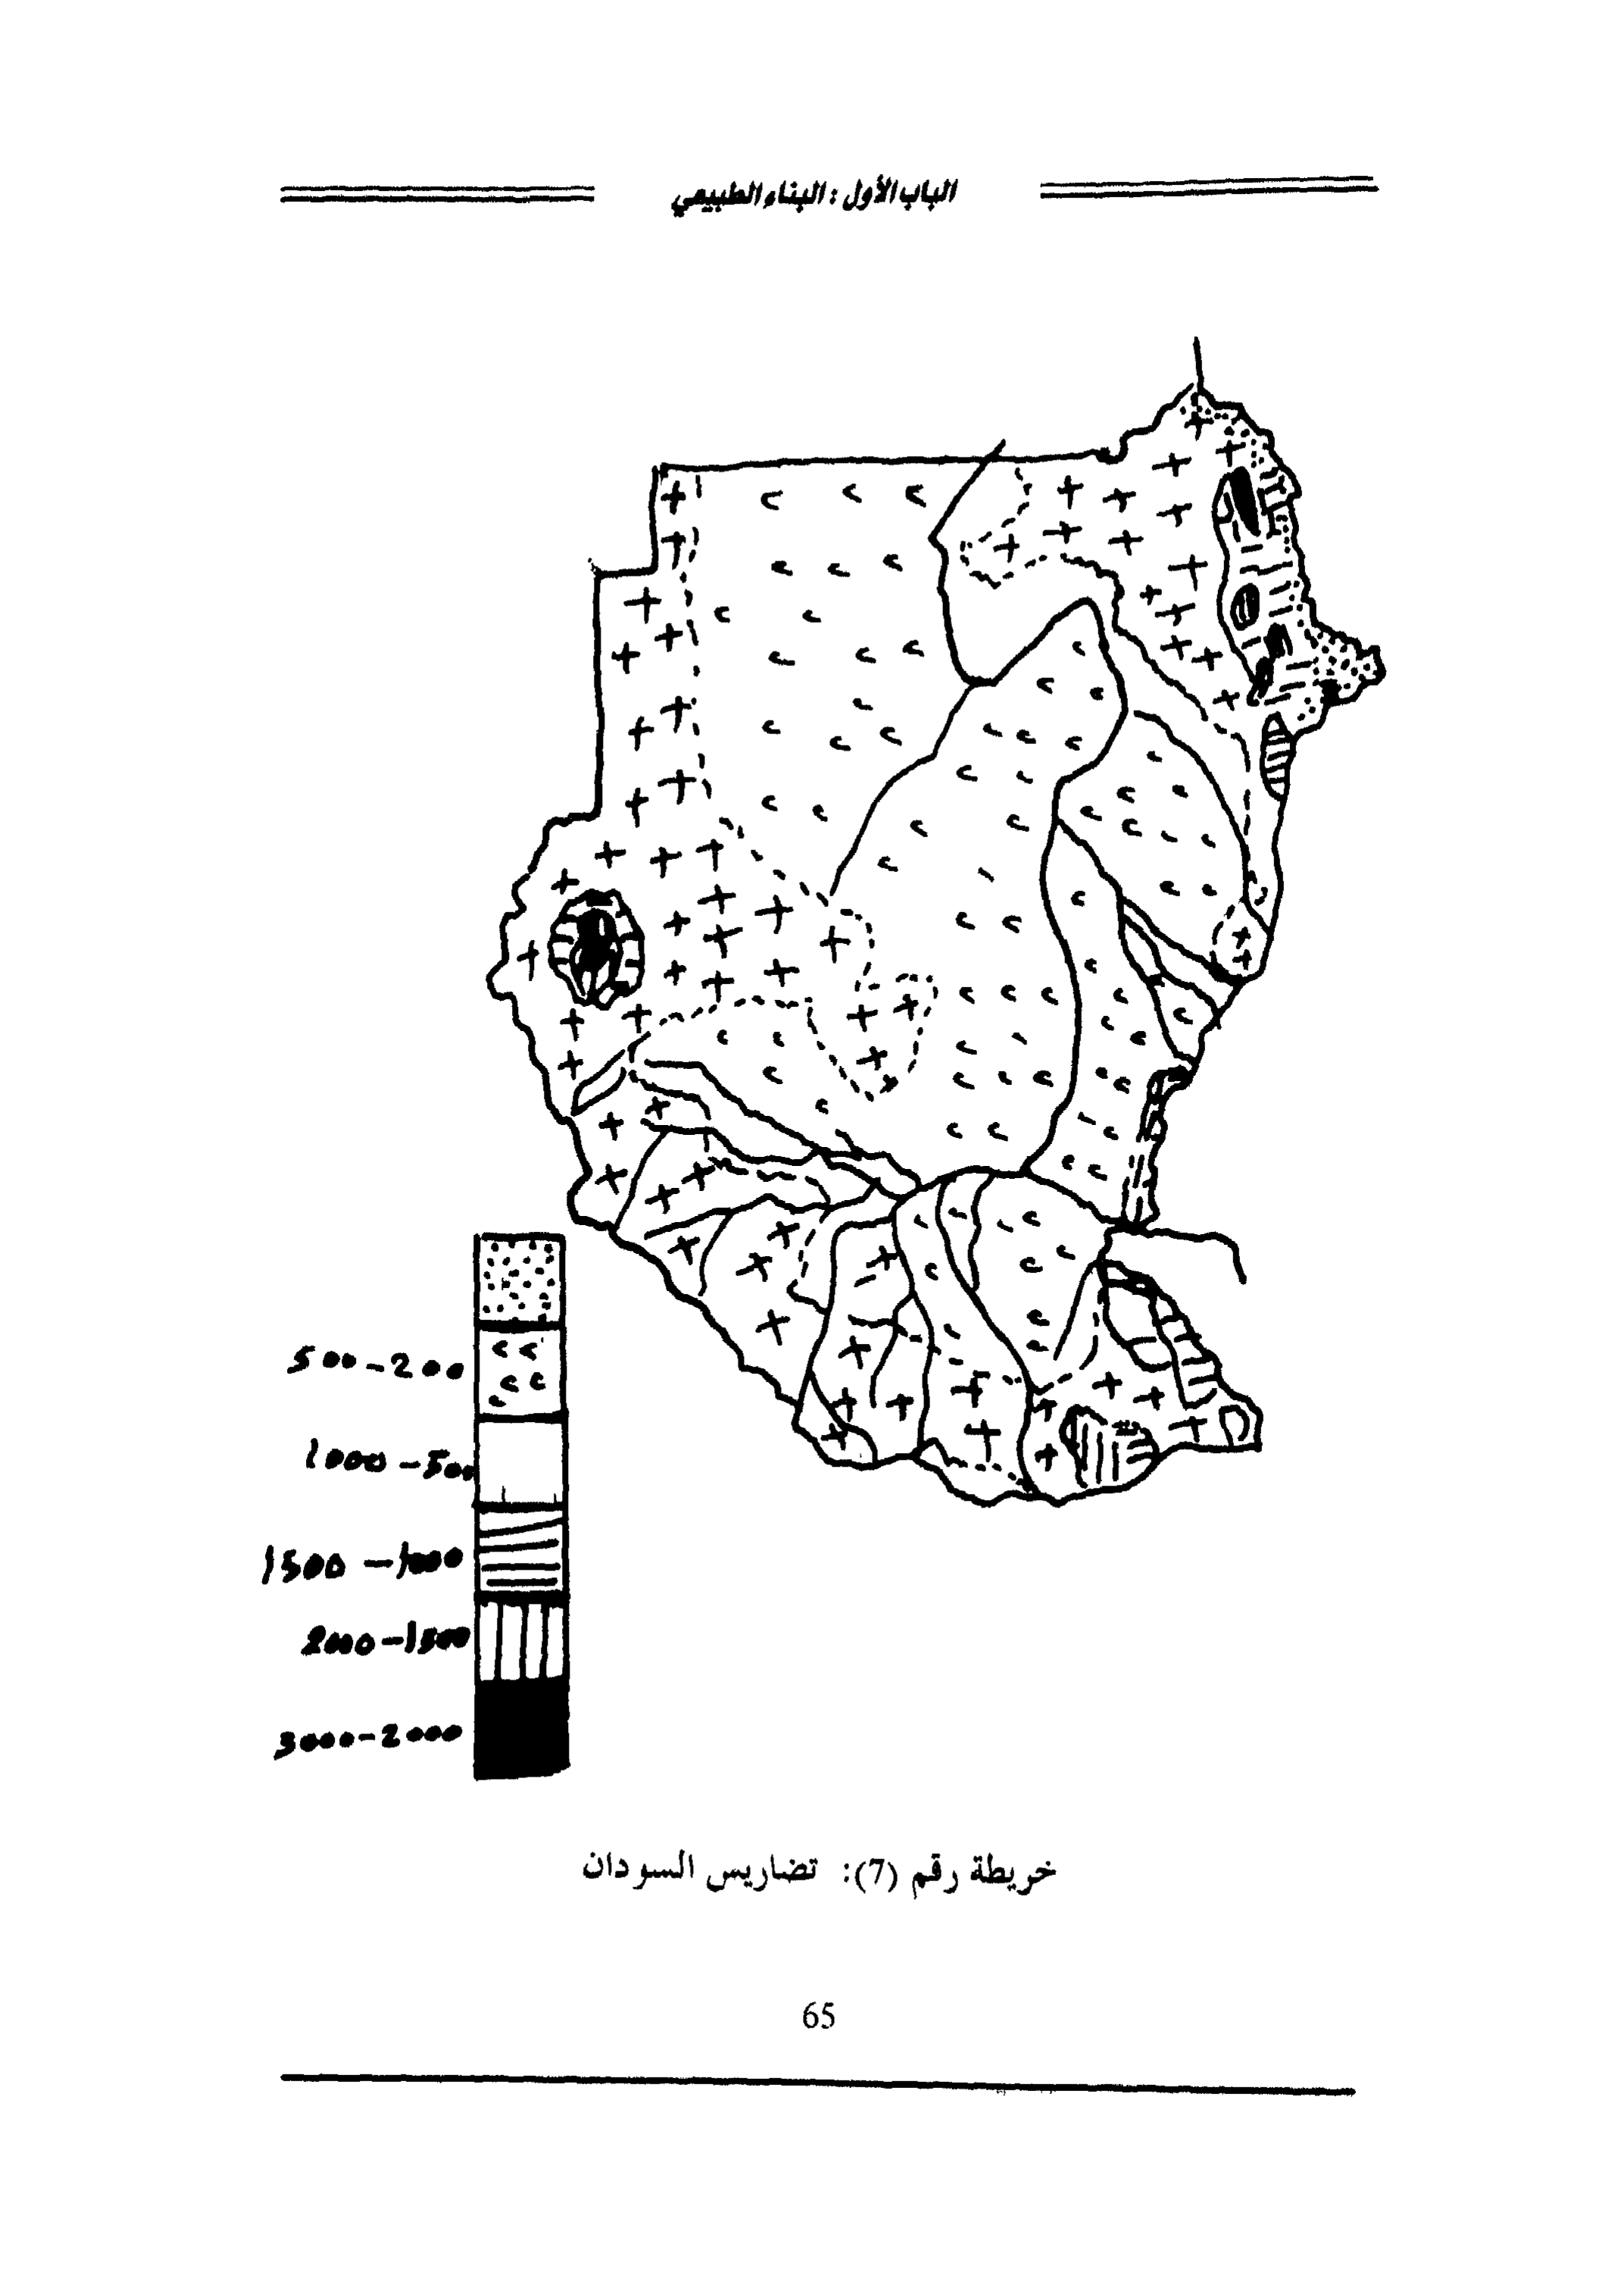 الباب الأول : البناء الطبيعي
500-200
1000-500
1500-1000
2000-1500
3000-2000
خريطة رقم (7): تضاريس السودان
65